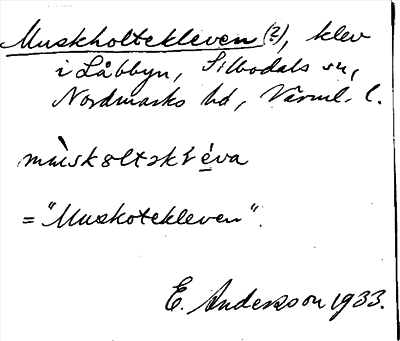 Muskholtekleven (2), klev
i Låbbyn, Silbodals sn,
Nordmarks hd, Värml. l.
= "Muskotekleven".
E. Andersson 1933.